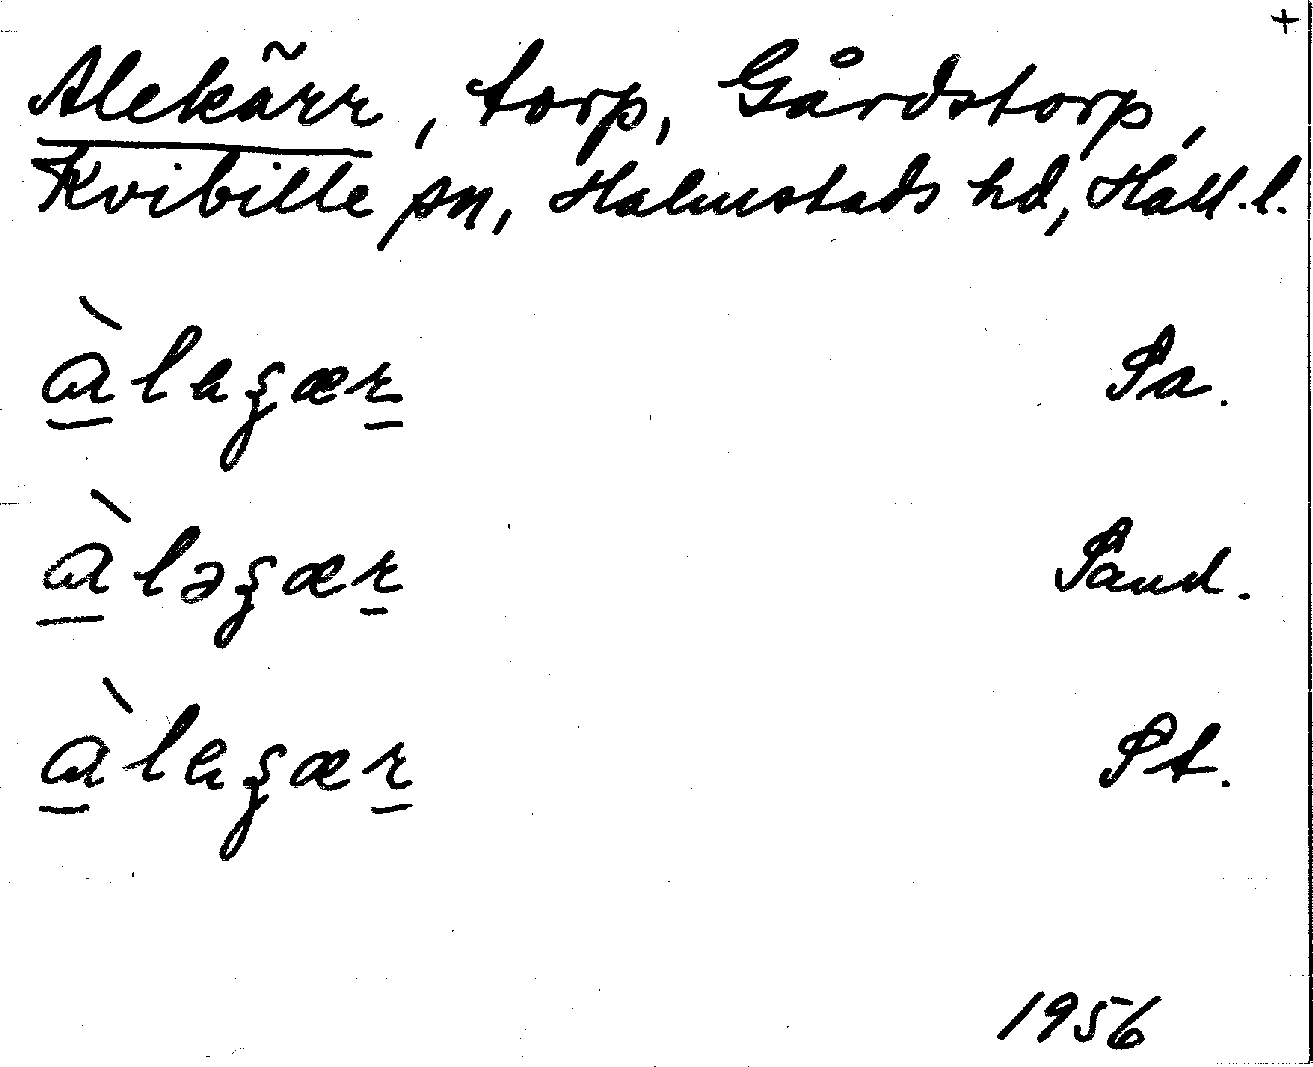 +
Alekärr, torp, Gårdstorp,
Kvibille sn, Halmstads hd, Hall. l.
àlegær Pa.
àləgær Paud.
àlegær Pt.
1956